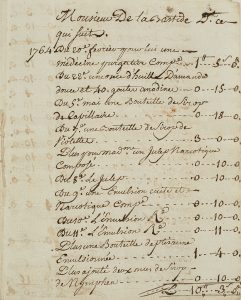 Monsieur De la Bastide Dt. ce
qui suit
1764 Du 20e. fevrier pour lui une
medecine purgative Compée. 1..5..0
Du 22e. une once d'huille Damande
douce et 40 goutes anodines 0..15..0
Du 5e. mai une Bouteille de Sirop
de Capillaire 0..18..0
Du une Bouteille de Sirop de
Violette 3..0..0
Plus pour mad. un Julep Narcotique
Composé 0..10..0
Du 8e. le Julep 0..10..0
Du 9e. une Emulsion cuite et
Narcotique Compée. 0..10..0
Du 10e. L'Emulsion Ré. 0..10..0
Du 11e. L'Emulsion Ré. 0..10..0
Plus une Bouteille de ptisanne
Emulsionnée 1..4..0
Plus ajouté deux onces de Sirop
de Nymphea 0..10..0
10..3..6